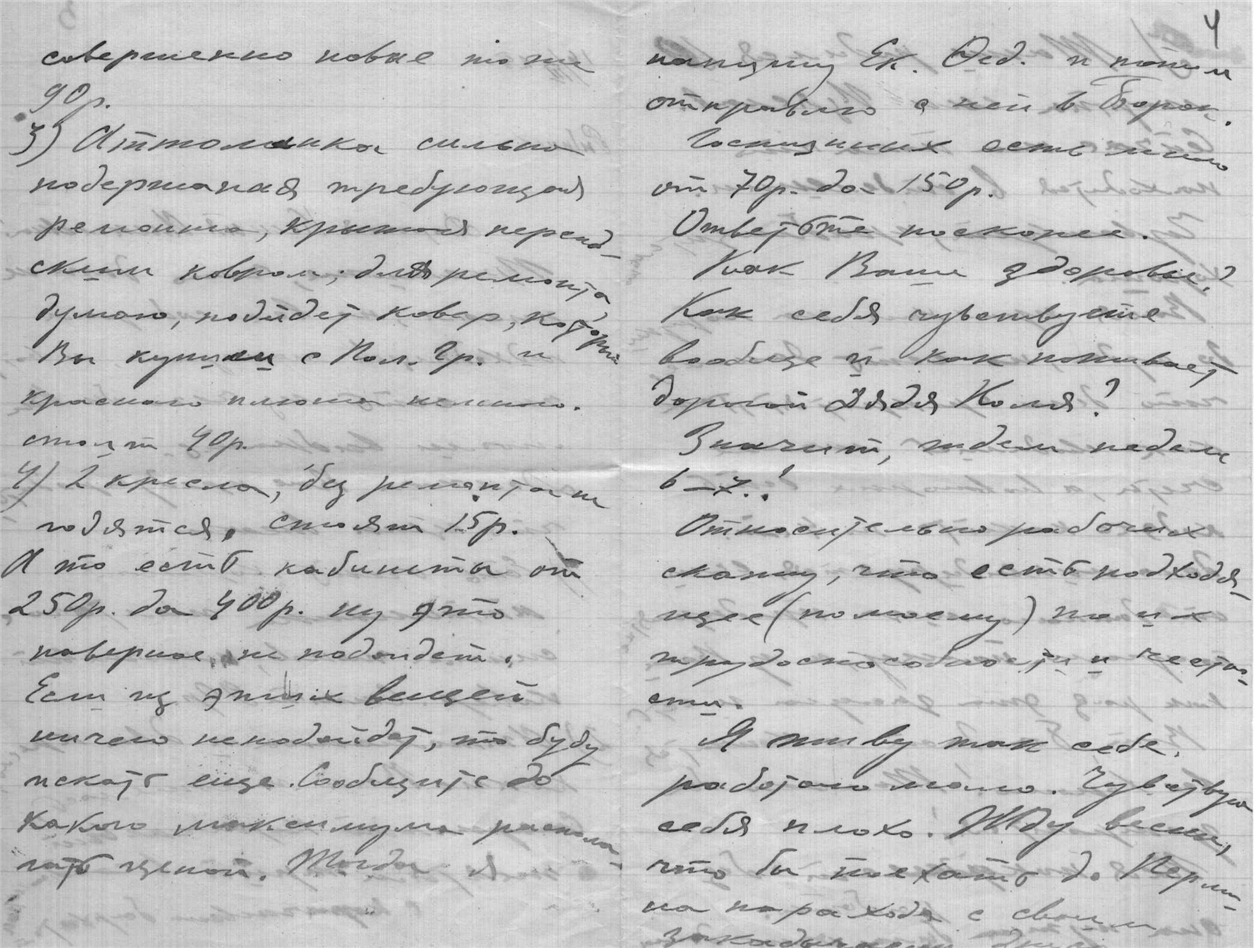 совершенно новые тоже
90р.
3) Аттоманка сильно
подержаная требующая
ремонта, крытая персид-
ским ковром; для ремонта
думаю, подйдет ковер, который
Вы купили с Пол. Гр. и
красного плюша немного.
стоит 40р.
4) 2 кресла, без ремонта не
годятся, стоят 15р.
А то есть кабинеты от
250р. до 400р. ну это
наверное, не подойдет.
Если из этих вещей
ничего неподойдет, то буду
искать еще. Сообщите до
какого максимума распола-
гать ценой. Тогда я
4
напишу Ек. Фед. и потом
отправлю с ней в Борок.
Гостинных есть много
от 70р. до 150р.
Ответьте поскорее.
Как Ваше здоровье?
Как себя чувствуете
вообще и как поживает
дорогой Дядя Коля?
Значит, ждем недели
6–7.!
Относительно рабочих
скажу, что есть подходя-
щее (помоему) по их
трудоспособности и честно-
сти.
Я живу так себе,
работаю мало. Чувствую
себя плохо! Жду весны,
что бы поехать до Перми
на пароходе с своим